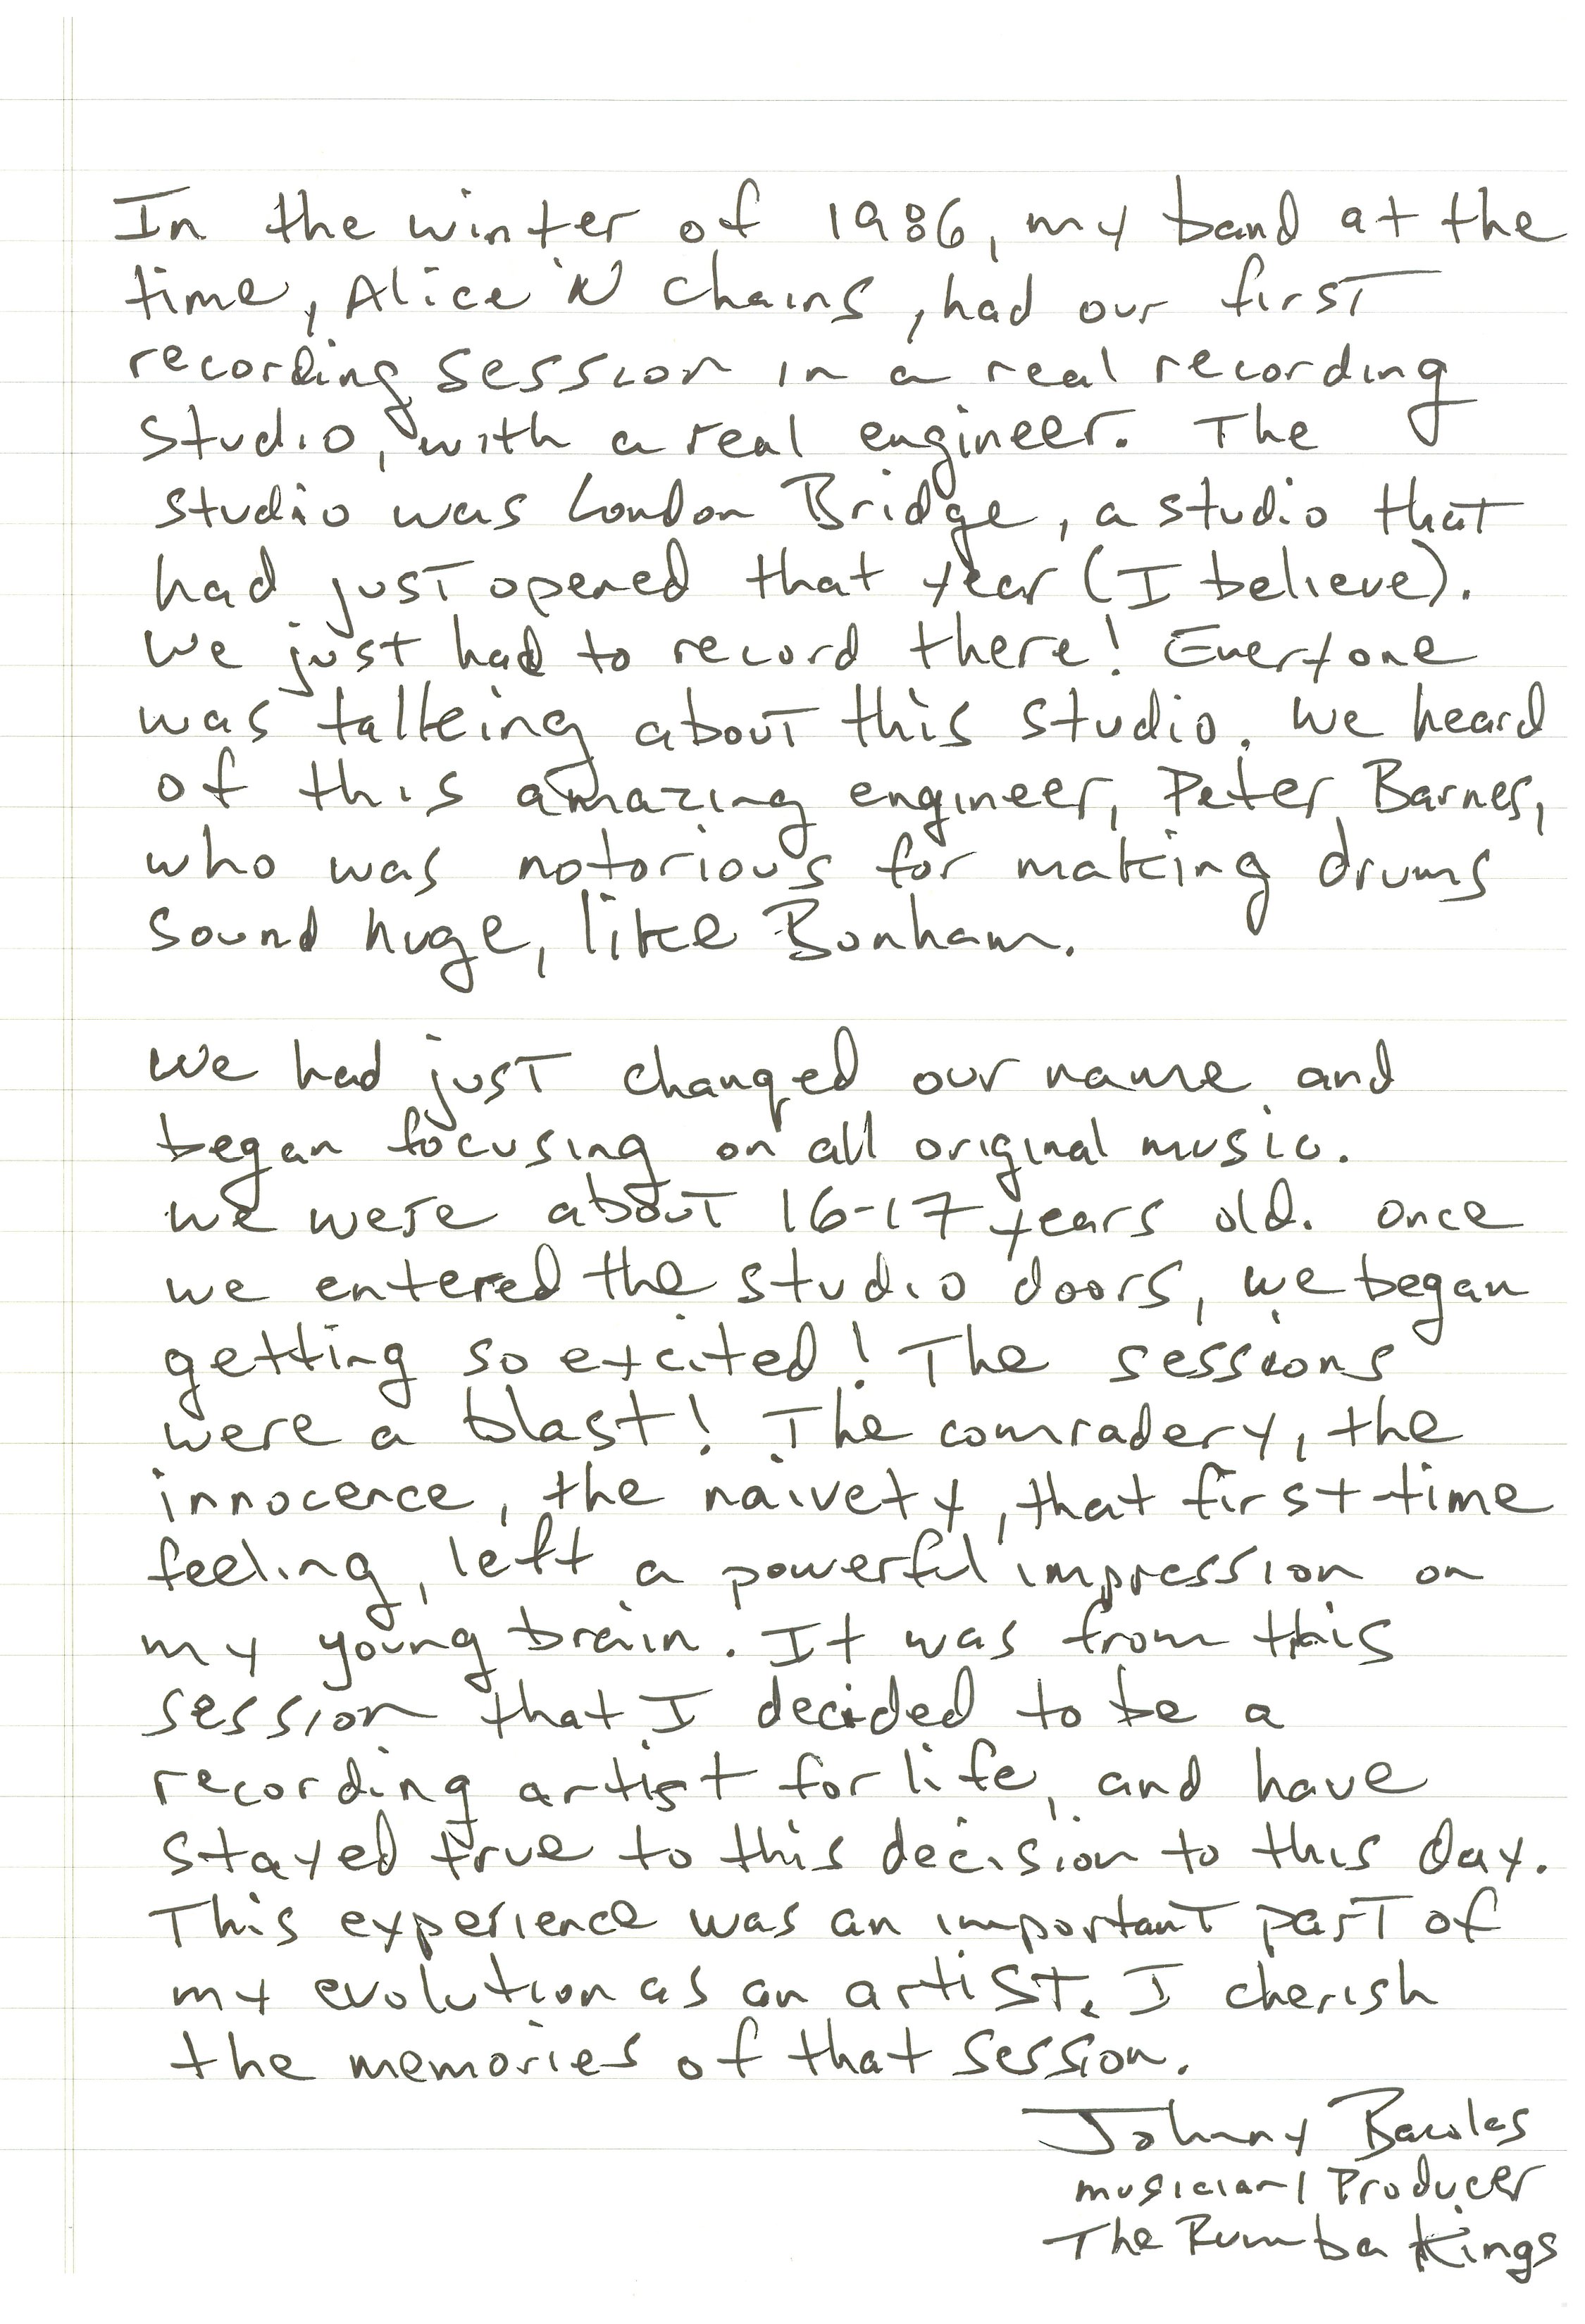 In the winter of 1986, my band at the
time, Alice 'N Chains, had our first
recording session in a real recording
studio, with a real engineer. The
studio was London Bridge, a studio that
had just opened that year (I believe).
We just had to record there! Everyone
was talking about this studio. We heard
of this amazing engineer, Peter Barnes,
who was notorious for making drums
sound huge, like Bonham.
We had just changed our name and
began focusing on all original music.
We were about 16-17 years old. Once
we entered the studio doors, we began
getting so excited! The sessions
were a blast! The comradery, the
innocence, the naivety, that first-time
feeling, left a powerful impression on
my young brain. It was from this
session that I decided to be a
recording artist for life, and have
stayed true to this decision to this day.
This experience was an important part of
my evolution as an artist. I cherish
the memories of that session.
Johnny Bacolas
musician / Producer
The Rumba Kings